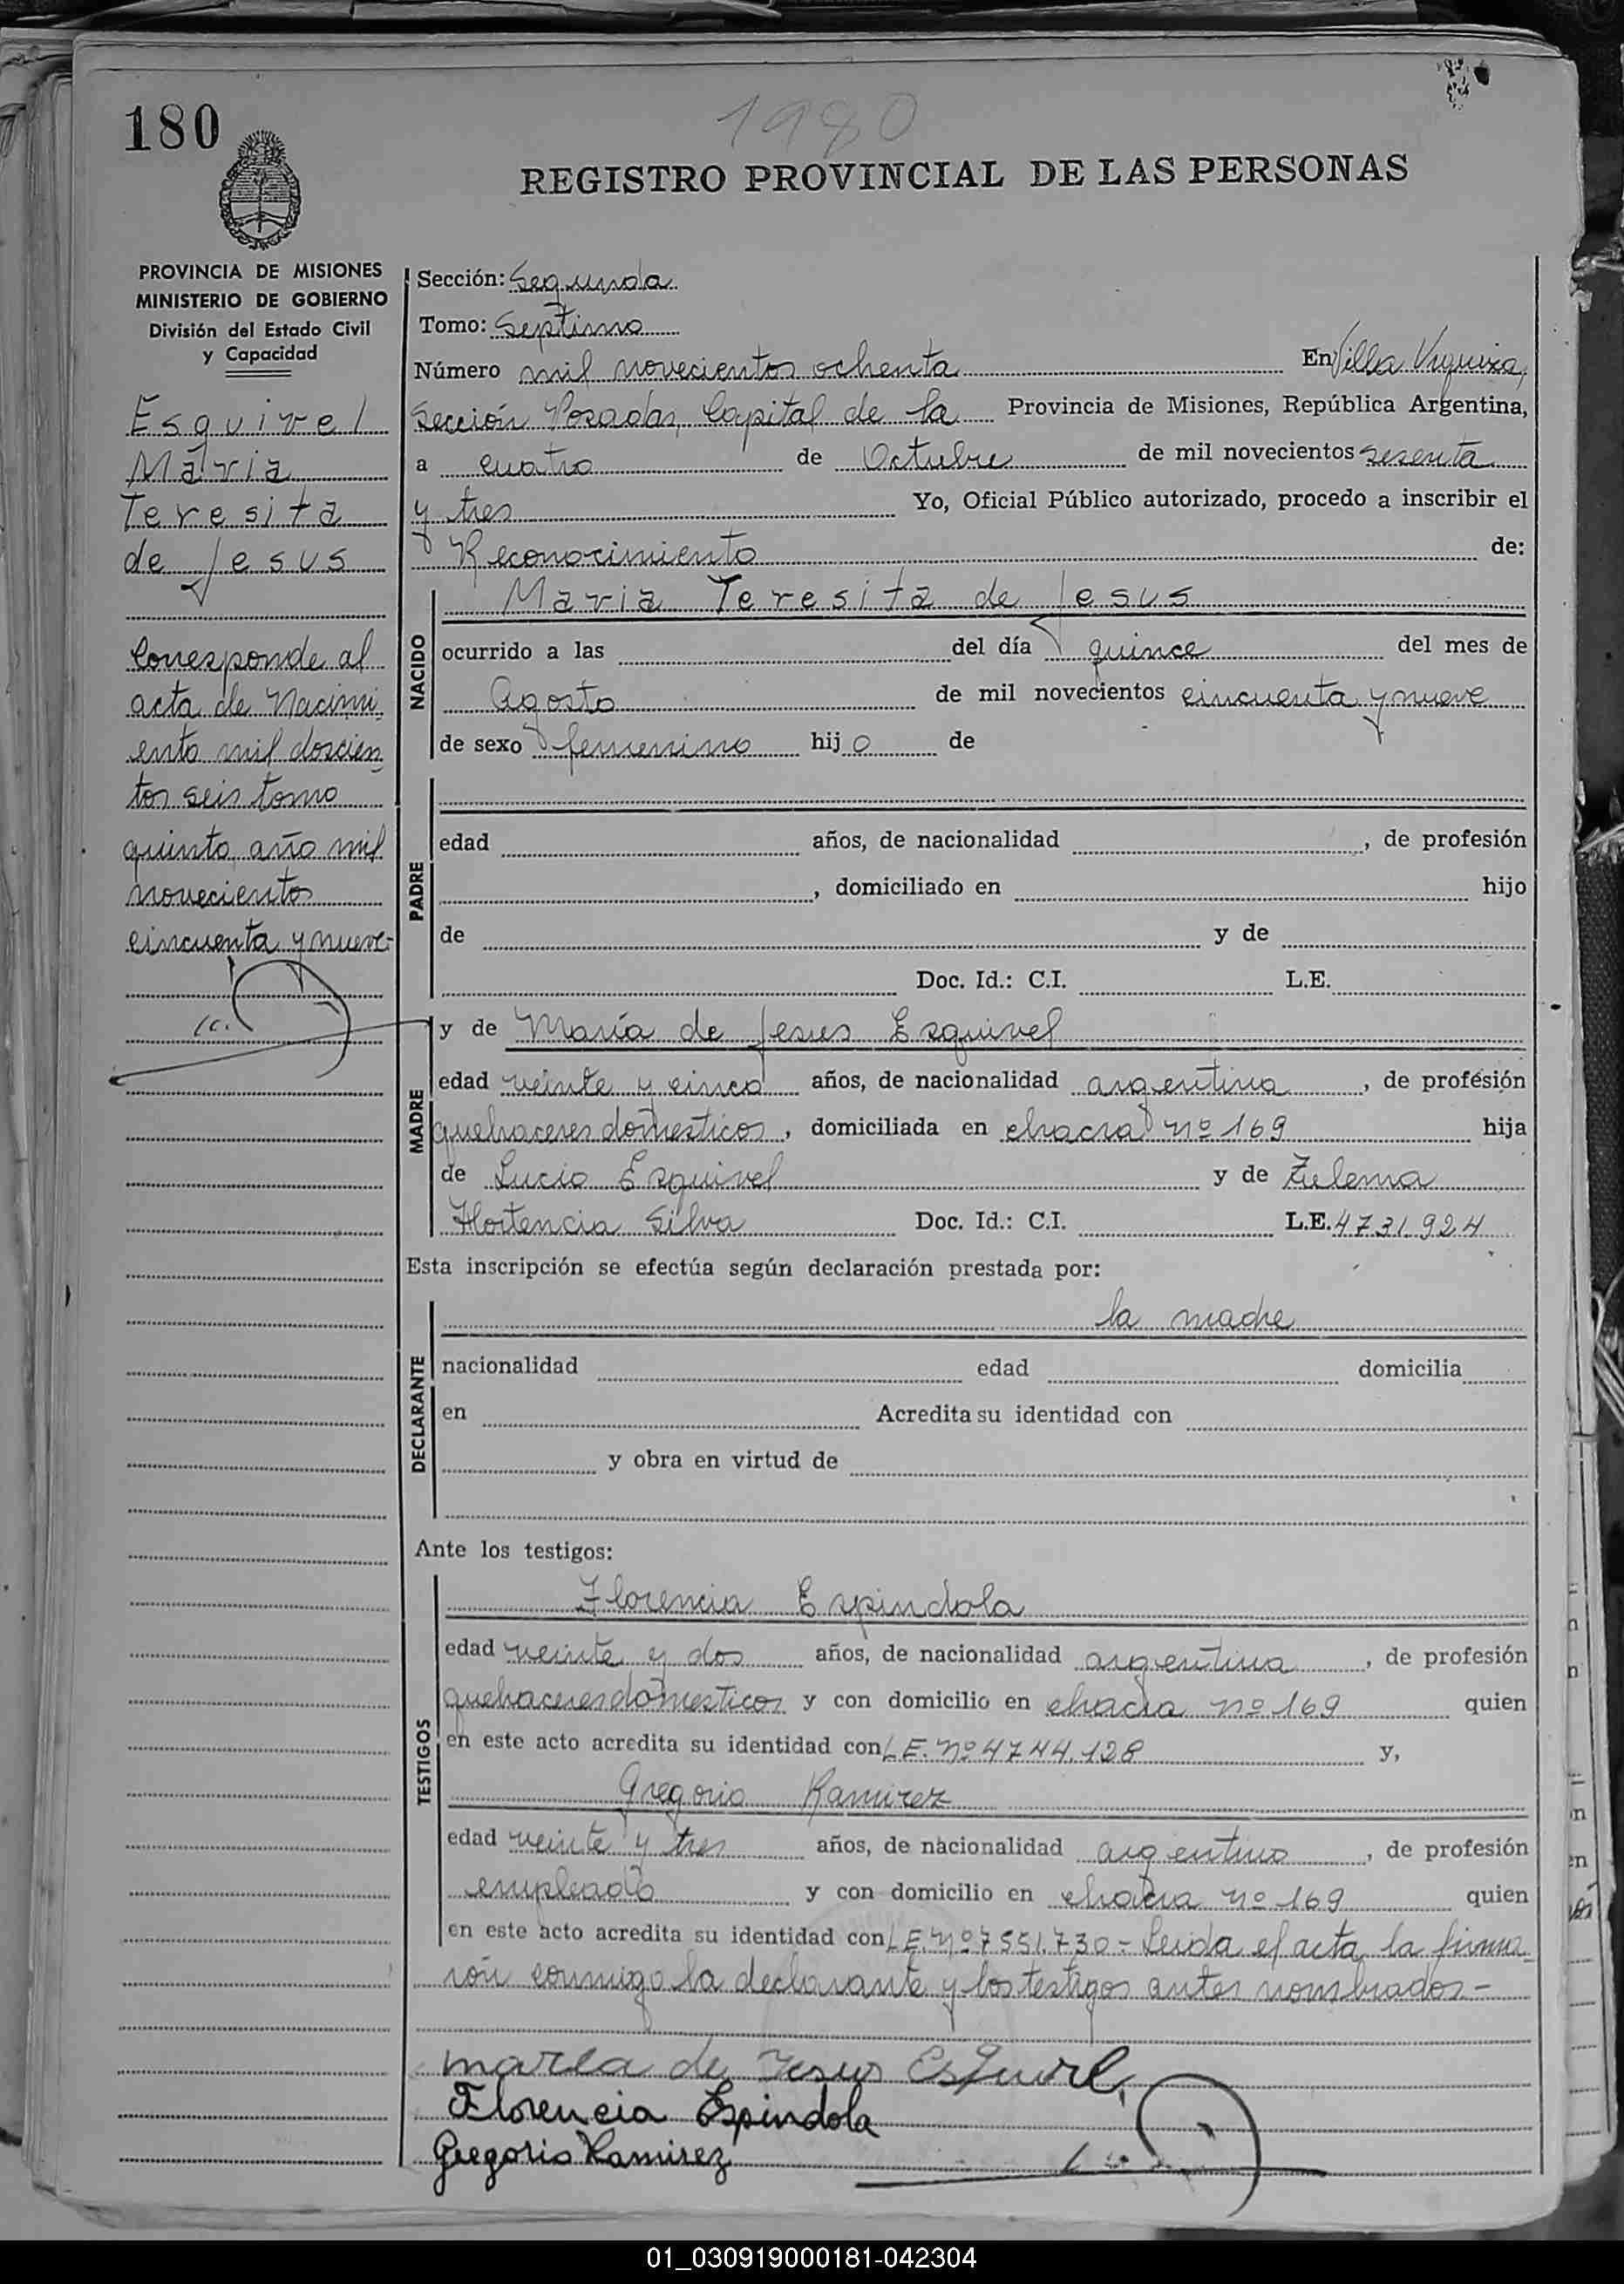 180
1980
REGISTRO PROVINCIAL DE LAS PERSONAS
PROVINCIA DE MISIONES
MINISTERIO DE GOBIERNO
División del Estado Civil
y Capacidad
Esquivel
Maria
Teresita
de Jesus
Corresponde al
acta de Nacimi
ento mil doscien
tos seis tomo
quinto, año mil
novecientos
cincuenta y nueve-
Sección: Segunda
Tomo: Septimo
Número mil novecientos ochenta En Villa Urquiza,
Sección Posadas, Capital de la Provincia de Misiones, República Argentina,
a cuatro de Octubre de mil novecientos sesenta
y tres Yo, Oficial Público autorizado, procedo a inscribir el
Reconocimiento de:
NACIDO
Maria Teresita de Jesus
ocurrido a las del día quince del mes de
Agosto de mil novecientos cincuenta y nueve
de sexo femenino hij o de
PADRE
edad años, de nacionalidad , de profesión
, domiciliado en hijo
de y de
Doc. Id.: C.I. L.E.
MADRE
y de María de Jesus Esquivel
edad veinte y cinco años, de nacionalidad argentina , de profesión
quehaceres domesticos , domiciliada en chacra nº 169 hija
de Lucio Esquivel y de Zulema
Hortencia Silva Doc. Id.: C.I. L.E. 4731.924
Esta inscripción se efectúa según declaración prestada por:
DECLARANTE
la madre
nacionalidad edad domicilia
en Acredita su identidad con
y obra en virtud de
Ante los testigos:
TESTIGOS
Florencia Espindola
edad veinte y dos años, de nacionalidad argentina , de profesión
quehaceres domesticos y con domicilio en chacra nº 169 quien
en este acto acredita su identidad con L.E. nº 4744.128 y,
Gregorio Ramirez
edad veinte y tres años, de nacionalidad argentino , de profesión
empleado y con domicilio en chacra nº 169 quien
en este acto acredita su identidad con L.E. nº 7551.730 - Leida el acta, la firma
rón conmigo la declarante y los testigos antes nombrados-
maria de Jesus Esquivel
Florencia Espindola
Gregorio Ramirez
01_030919000181-042304